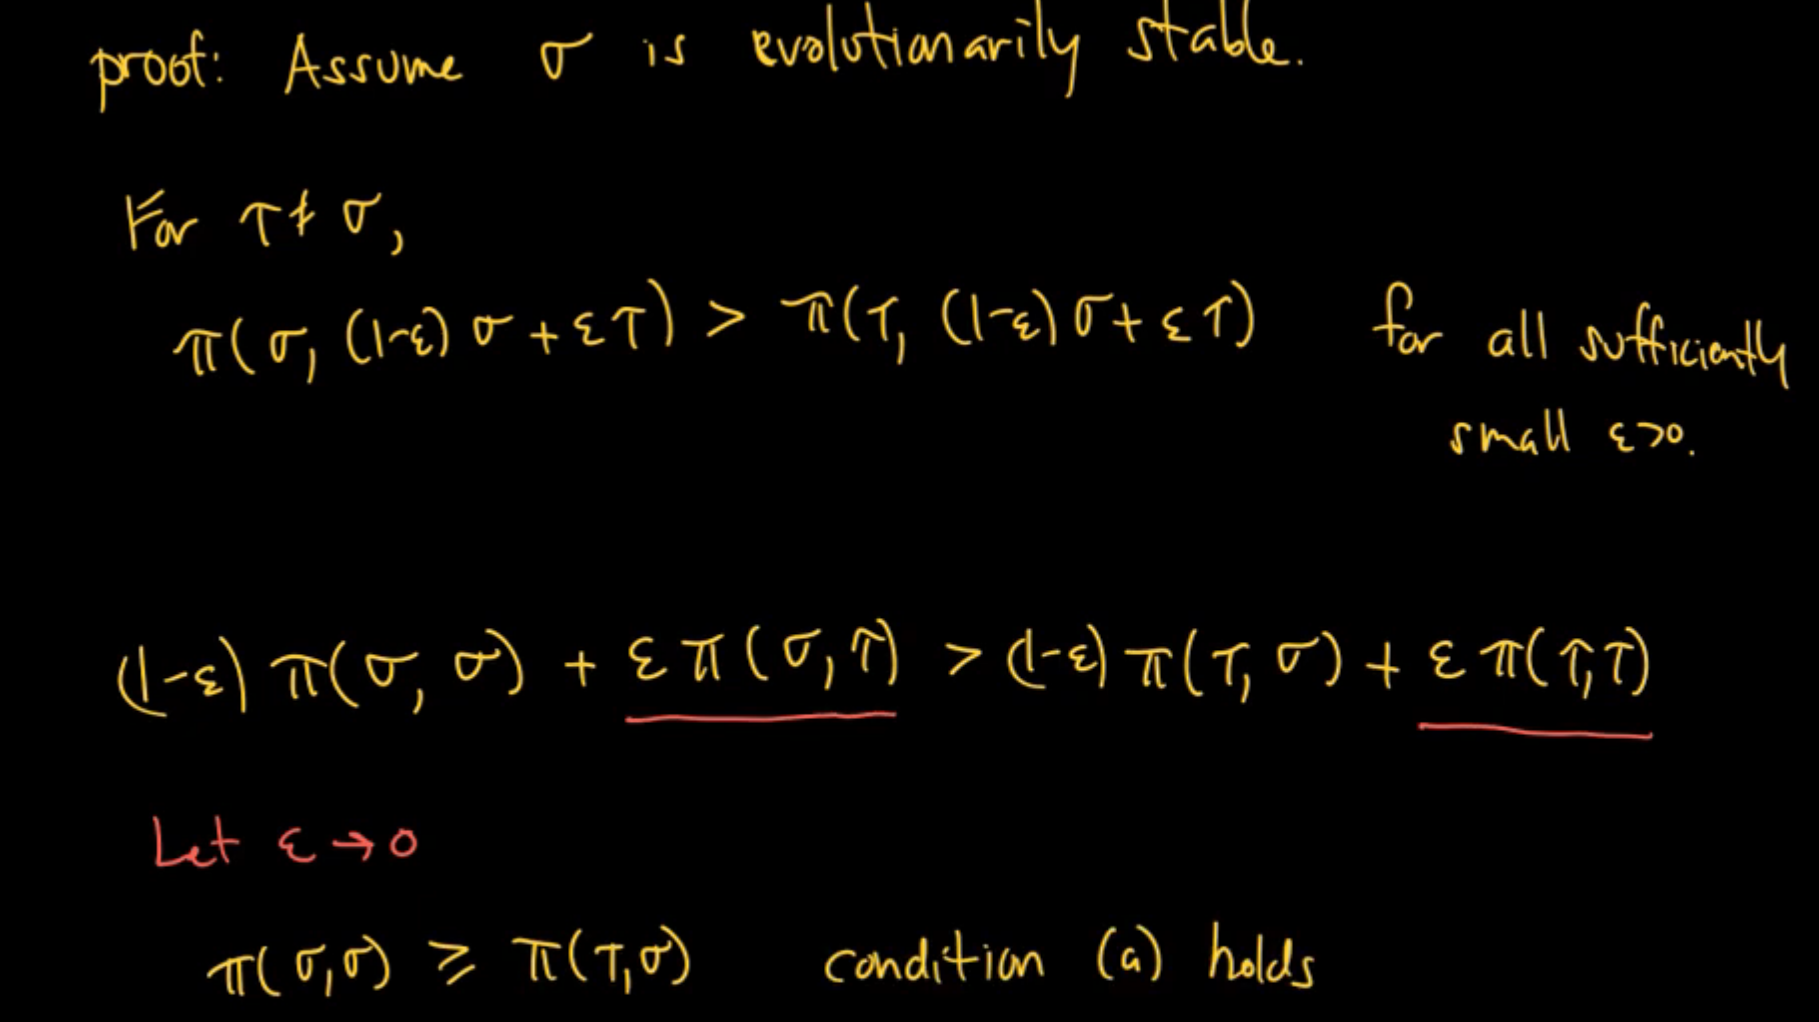 proof: Assume σ is evolutionarily stable.
For τ ≠ σ,
π(σ, (1-ε) σ + ε τ) > π(τ, (1-ε) σ + ε τ) for all sufficiently
small ε>0.
(1-ε) π(σ, σ) + ε π(σ, τ) > (1-ε) π(τ, σ) + ε π(τ, τ)
Let ε → 0
π(σ,σ) ≥ π(τ,σ) condition (a) holds